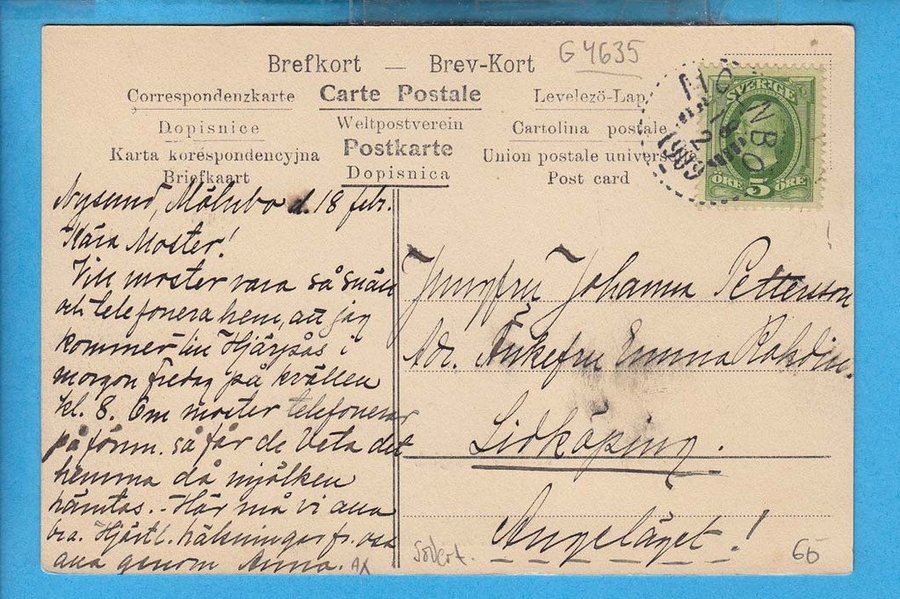 G 4635
Brefkort — Brev-Kort
Correspondenzkarte Carte Postale Levelező-Lap
Dopisnice Weltpostverein Cartolina postale
Karta korespondencyjna Postkarte Union postale univers
Briefkaart Dopisnica Post card
SVERIGE
ÖRE 5 ÖRE
NBO
1909
Nysund, Mölnbo d. 18 febr.
Kära Moster!
Vill moster vara så snäll
och telefonera hem, att jag
kommer till Hjärpås i
morgon fredag på kvällen
kl. 8. Om moster telefonerar
på förm. så får de veta det
hemma då mjölken
hämtas. - Här må vi alla
bra. Hjärtl. hälsningar fr. oss
alla genom Anna.
Jungfru Johanna Pettersson
Adr. Änkefru Emma
Lidköping.
Angeläget!
66